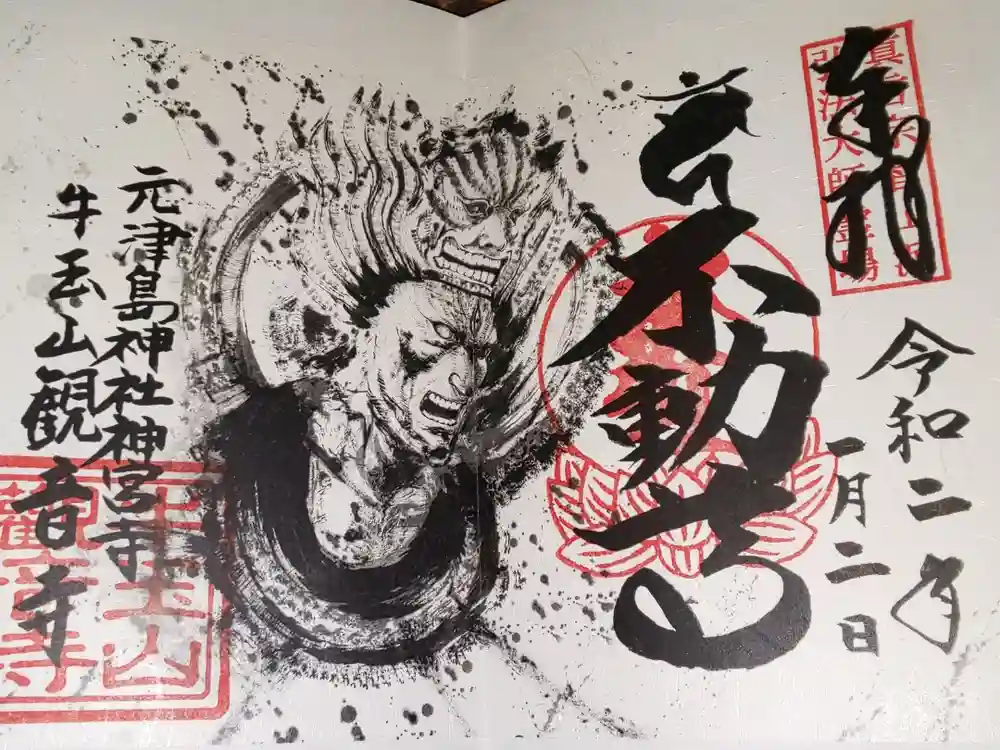 奉拝
令和二年
一月二日
苔不動尊
元津島神社神宮寺
牛玉山観音寺
牛玉山
観音寺
弘法大師霊場